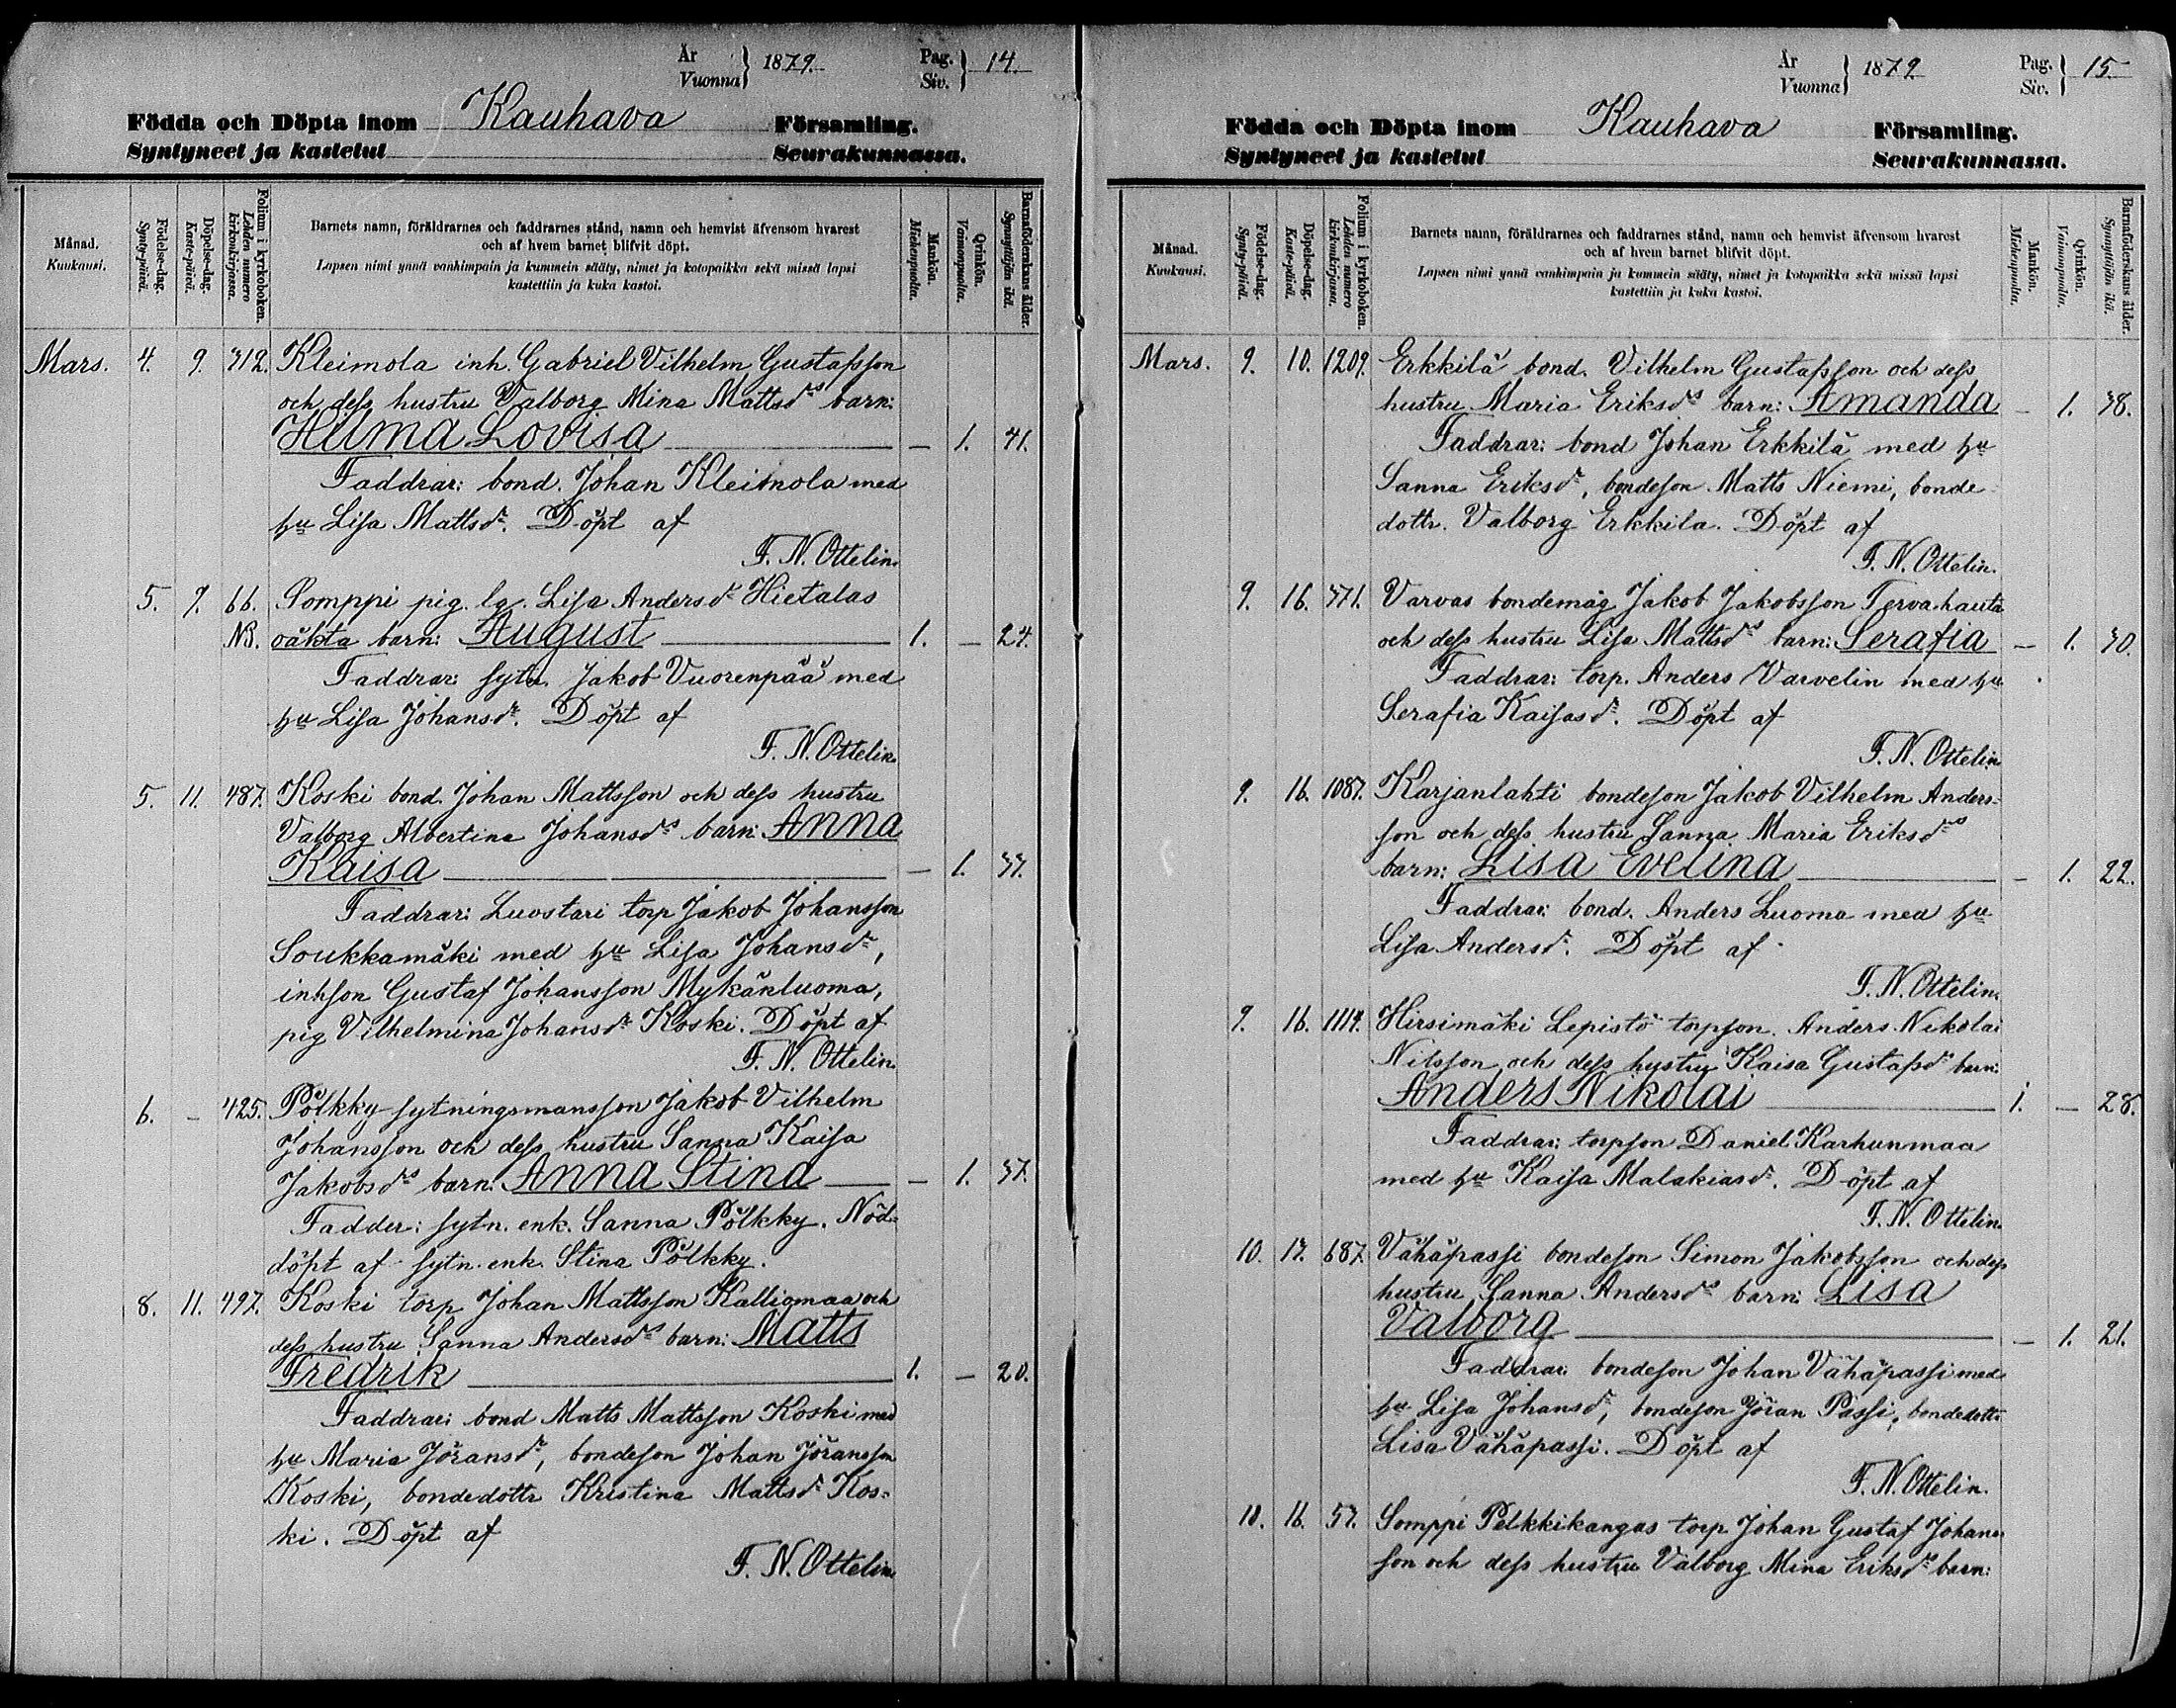 År
Vuonna } 1879.
Pag.
Siv. } 14.
Födda och Döpta inom Kauhava Församling.
Syntyneet ja kastetut Seurakunnassa.
Månad.
Kuukausi.
Födelse-dag.
Synty-päivä.
Döpelse-dag.
Kaste-päivä.
Folium i kyrkoboken.
Lehden numero kirkonkirjassa.
Barnets namn, föräldrarnes och faddrarnes stånd, namn och hemvist äfvensom hvarest
och af hvem barnet blifvit döpt.
Lapsen nimi ynnä vanhimpain ja kummein sääty, nimet ja kotopaikka sekä missä lapsi
kastettiin ja kuka kastoi.
Mankön.
Miehenpuolta.
Qvinkön.
Vaimonpuolta.
Barnaföderskans ålder.
Synnyttäjän ikä.
Mars. 4. 9. 312. Kleimola inh. Gabriel Vilhelm Gustafsson
och dess hustru Valborg Mina Mattsdrs barn:
Hilma Lovisa — 1. 41.
Faddrar: bond. Johan Kleimola med
hu Lisa Mattsdr. Döpt af
F. N. Ottelin.
5. 9. 66. Somppi pig. lg. Lisa Andersdr Hietalas
NB. oäkta barn: August 1. — 24.
Faddrar: sytn. Jakob Vuorenpää med
hu Lisa Johansdr. Döpt af
F. N. Ottelin.
5. 11. 487. Koski bond. Johan Mattsson och dess hustru
Valborg Albertina Johansdrs barn: Anna
Kaisa — 1. 37.
Faddrar: Luostari torp Jakob Johansson
Soukkamäki med hu Lisa Johansdr,
inhson Gustaf Johansson Mykäkluoma,
pig Vilhelmina Johansdr Koski. Döpt af
F. N. Ottelin.
6. — 425. Pölkky sytningsmansson Jakob Vilhelm
Johansson och dess hustru Sanna Kaisa
Jakobsdrs barn: Anna Stina — 1. 37.
Fadder: sytn. enk. Sanna Pölkky. Nöd-
döpt af sytn. enk. Stina Pölkky.
8. 11. 497. Koski torp Johan Mattsson Kalliomaa och
dess hustru Sanna Andersdrs barn: Matts
Fredrik 1. — 20.
Faddrar: bond Matts Mattsson Koski med
hu Maria Jöransdr, bondeson Johan Jöransson
Koski, bondedottr Kristina Mattsdr Kos-
ki. Döpt af
F. N. Ottelin
År
Vuonna } 1879
Pag.
Siv. } 15.
Födda och Döpta inom Kauhava Församling.
Syntyneet ja kastetut Seurakunnassa.
Månad.
Kuukausi.
Födelse-dag.
Synty-päivä.
Döpelse-dag.
Kaste-päivä.
Folium i kyrkoboken.
Lehden numero kirkonkirjassa.
Barnets namn, föräldrarnes och faddrarnes stånd, namn och hemvist äfvensom hvarest
och af hvem barnet blifvit döpt.
Lapsen nimi ynnä vanhimpain ja kummein sääty, nimet ja kotopaikka sekä missä lapsi
kastettiin ja kuka kastoi.
Mankön.
Miehenpuolta.
Qvinkön.
Vaimonpuolta.
Barnaföderskans ålder.
Synnyttäjän ikä.
Mars. 9. 10. 1209. Erkkilä bond. Vilhelm Gustafsson och dess
hustru Maria Eriksdrs barn: Amanda — 1. 38.
Faddrar: bond Johan Erkkilä med hu
Sanna Eriksdr, bondeson Matts Niemi, bonde
dottr. Valborg Erkkila. Döpt af
F. N. Ottelin.
9. 16. 371. Varvas bondemåg Jakob Jakobsson Tervahauta
och dess hustru Lisa Mattsdrs barn: Serafia — 1. 30.
Faddrar: torp. Anders Varvelin med hu
Serafia Kaisasdr. Döpt af
F. N. Ottelin
9. 16. 1087. Karjanlahti bondeson Jakob Vilhelm Anders-
son och dess hustru Sanna Maria Eriksdrs
barn: Lisa Evelina — 1. 22.
Faddrar: bond. Anders Luoma med hu
Lisa Andersdr. Döpt af
F. N. Ottelin.
9. 16. 1114. Hirsimäki Lepistö torpson. Anders Nikolai
Nilsson och dess hustru Kaisa Gustafsdrs barn:
Anders Nikolai 1. — 28.
Faddrar: torpson Daniel Karhunmaa
med hu Kaisa Malakiasdr. Döpt af
F. N. Ottelin.
10. 17. 687. Vähäpassi bondeson Simon Jakobsson och dess
hustru Sanna Andersdrs barn: Lisa
Valborg — 1. 21.
Faddrar: bondeson Johan Vähäpassi med
hu Lisa Johansdr, bondeson Jöran Passi, bondedottr
Lisa Vähäpassi. Döpt af
F. N. Ottelin.
10. 16. 57. Somppi Pelkkikangas torp Johan Gustaf Johans
son och dess hustru Valborg Mina Eriksdrs barn: